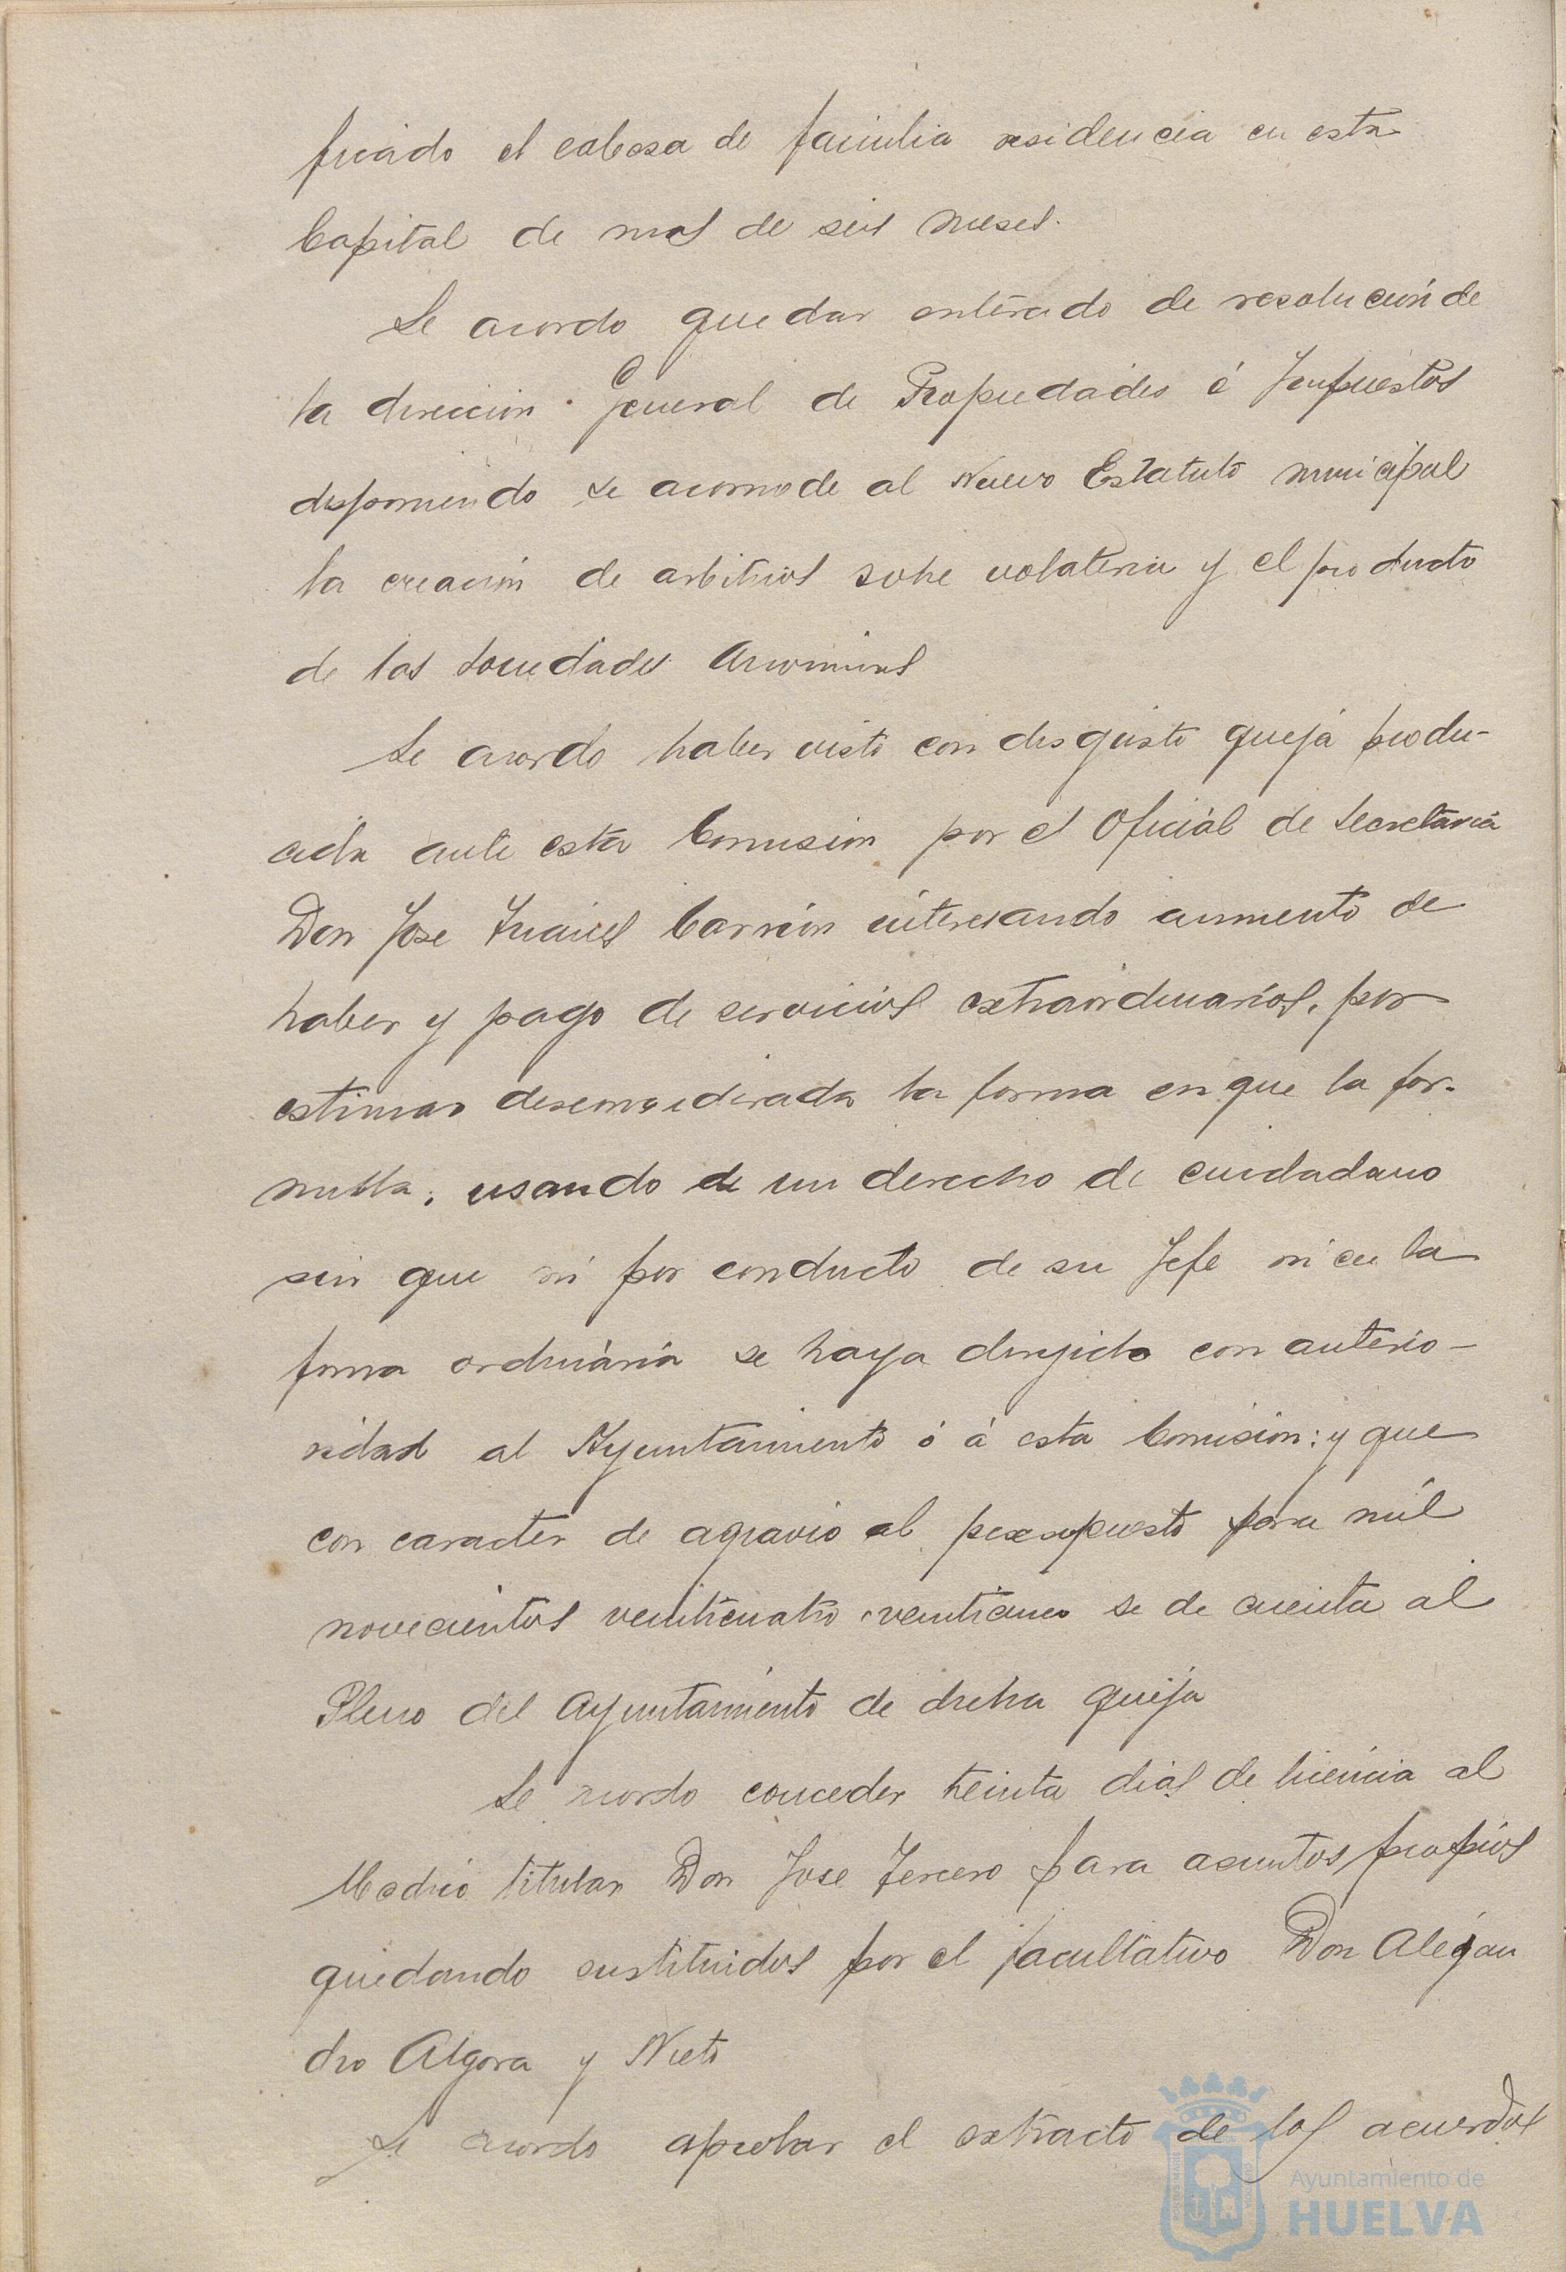 ficado el cabesa de familia residencia en esta
Capital de mas de seis meses.
Se acordo quedar enterado de resolucion de
la direccion General de Propiedades é Impuestos
disponiendo se acomode al Nuevo Estatuto municipal
la creacion de arbitrios sobre volateria y el producto
de las Sociedades Anonimas
Se acordo haber visto con disgusto queja produ-
cida ante esta Comision por el Oficial de Secretaria
Don Jose Carrion interesando aumento de
haber y pago de servicios extraordinarios, por
estimar desconsiderada la forma en que la for-
mula, usando de un derecho de cuidadano
sin que ni por conducto de su Jefe ni en la
forma ordinaria se haya dirijido con anterio-
ridad al Ayuntamiento ó á esta Comision: y que
con caracter de agravio al presupuesto para mil
novecientos veinticuatro veinticinco se de cuenta al
Pleno del Ayuntamiento de dicha queja
Se acordo conceder treinta dias de licencia al
Medico titular Don Jose Tercero para asuntos propios
quedando sustituidos por el facultativo Don Alejan
dro Algora y Nieto
Se acordo aprobar el extracto de los acuerdos
Ayuntamiento de
HUELVA